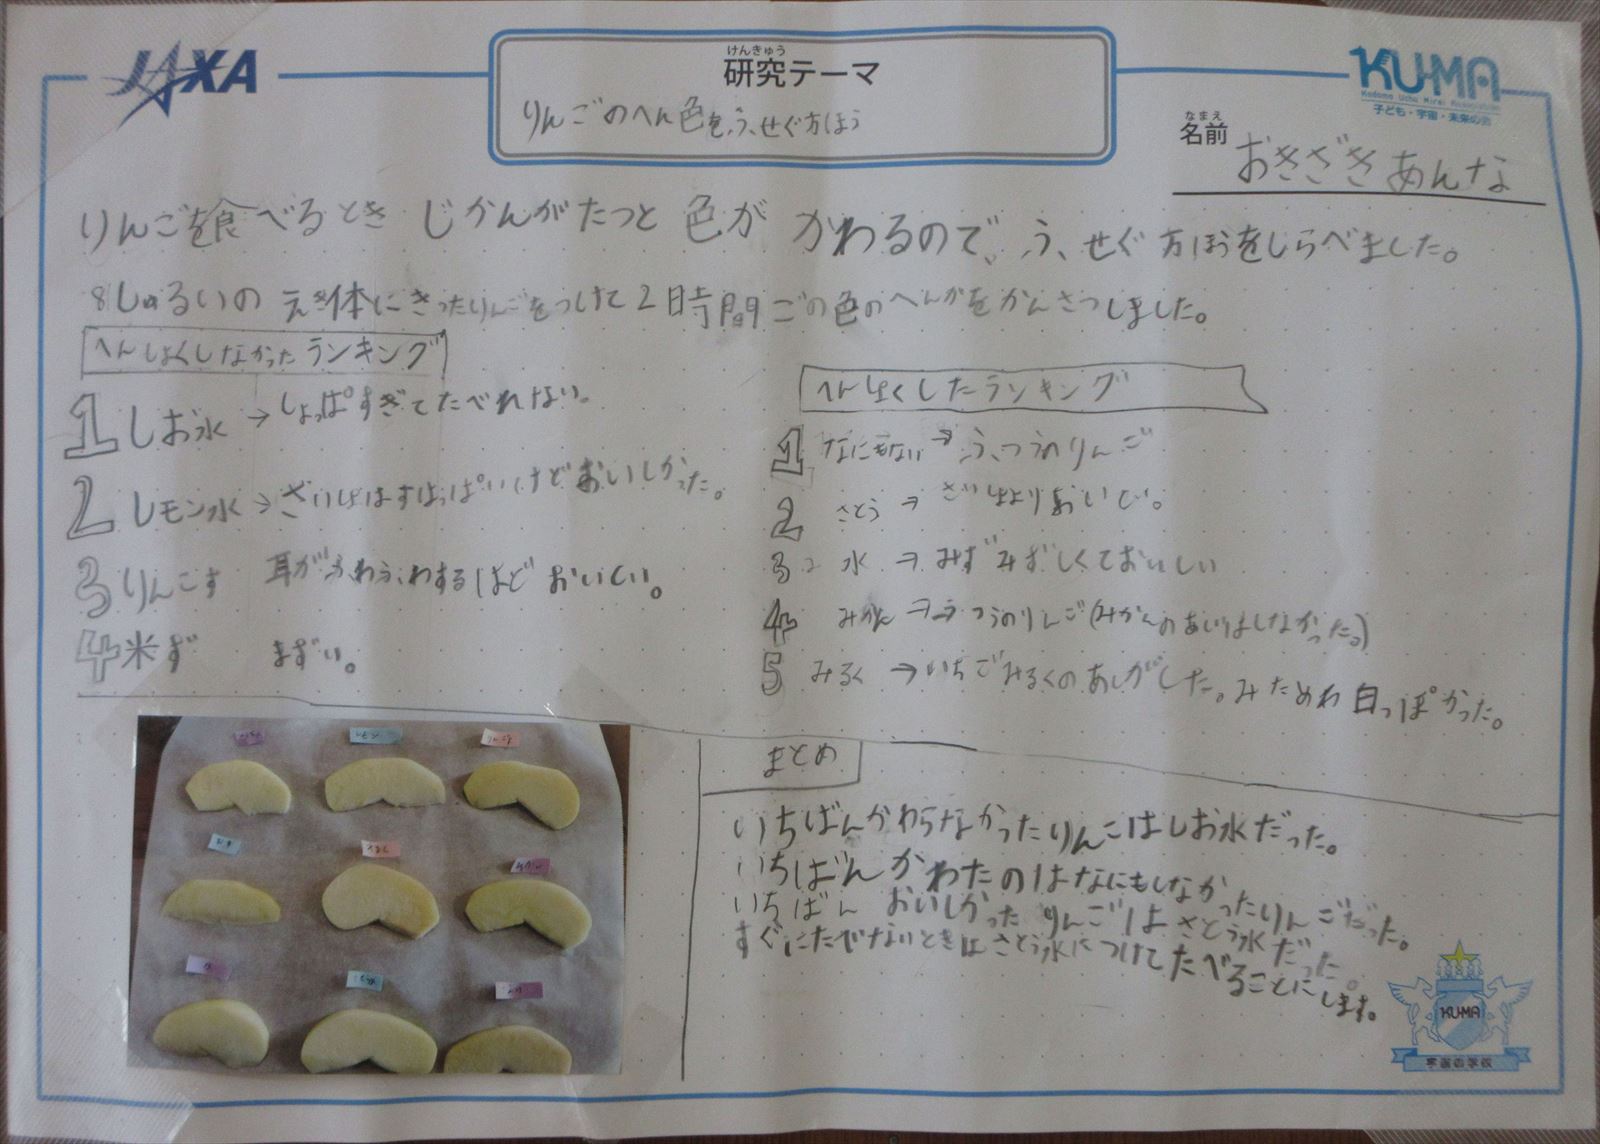 JAXA
けんきゅう
研究テーマ
りんごのへん色をふせぐ方ほう
KU-MA
Kodomo Uchu Mirai Association
子ども・宇宙・未来の会
なまえ
名前
おきざきあんな
りんごを食べるとき じかんがたつと 色が かわるので、ふせぐ方ほうをしらべました。
8しゅるいの えき体にきったりんごをつけて2時間ごの色のへんかをかんさつしました。
へんしょくしなかったランキング
1 しお水→しょっぱすぎてたべれない。
2 レモン水→さいしょはすっぱいけどおいしかった。
3 りんごす 耳がふわふわするほど おいしい。
4 米ず まずい。
へんしょくしたランキング
1 なにもない→ふつうのりんご
2 さとう→さいしょよりおいしい。
3 水→みずみずしくておいしい
4 みかん→ふつうのりんご(みかんのあじはしなかった。)
5 みるく→いちごみるくのあじがした。みためわ白っぽかった。
まとめ
いちばんかわらなかったりんごはしお水だった。
いちばんかわたのはなにもしなかったりんごだった。
いちばん おいしかった りんごは さとう水だった。
すぐにたべないときはさとう水につけてたべることにします。
レモン
みかん
KU-MA
宇宙の学校